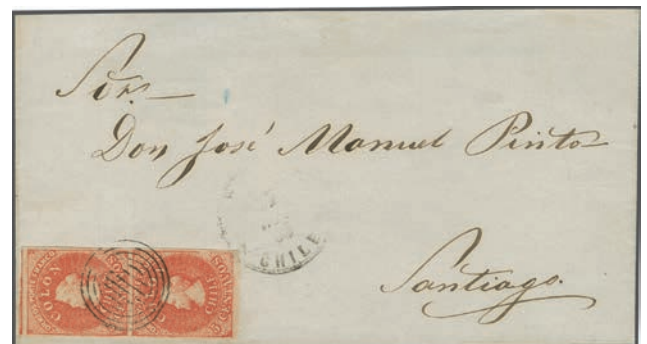 Sor.
Don José Manuel Pinto
CHILE
Santiago.
COLON
CHILE